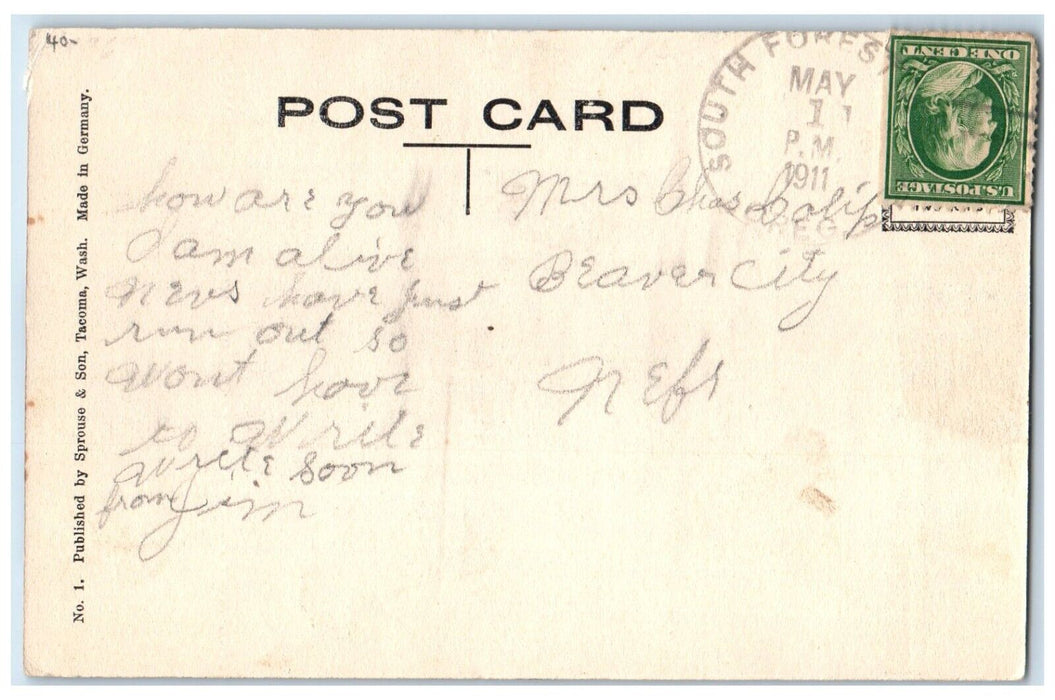 40-
POST CARD
SOUTH FOREST
MAY
1
P.M.
1911
ONE CENT
U.S. POSTAGE
how are you
I am alive
news have just
run out so
wont have
to write
write soon
from Jim
Mrs Chas
Beaver City
Nebr
No. 1. Published by Sprouse & Son, Tacoma, Wash. Made in Germany.